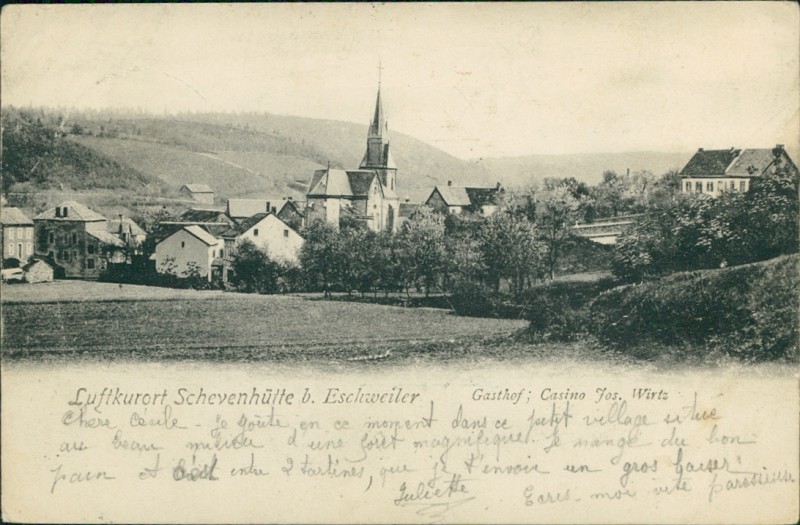 Luftkurort Schevenhütte b. Eschweiler
Gasthof; Casino Jos. Wirtz
Chère Cécile - Je goûte en ce moment dans ce petit village situé
au beau milieu d'une forêt magnifique. Je mange du bon
pain et c'est entre 2 tartines, que je t'envoie un "gros baiser"
Juliette
Ecris-moi vite paresseuse